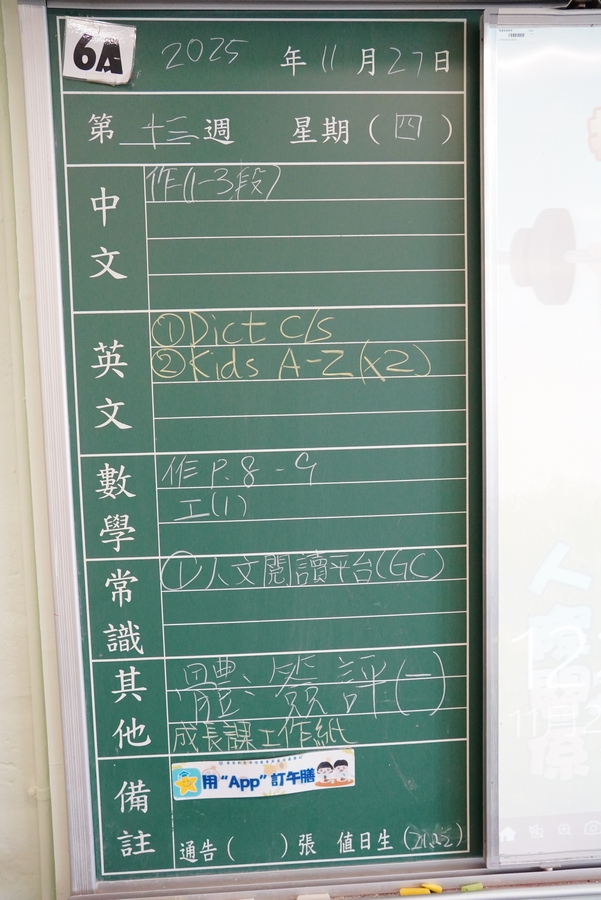 6A
2025 年 11 月 27 日
第 十三 週 星期 ( 四 )
中文
作(1-3段)
英文
①Dict C/S
②Kids A-Z (x2)
數學
作 P.8-9
工(1)
常識
①人文閱讀平台(GC)
其他
體、簽評(一)
成長課工作紙
備註
用 “App” 訂午膳
通告 ( ) 張 值日生 ( )